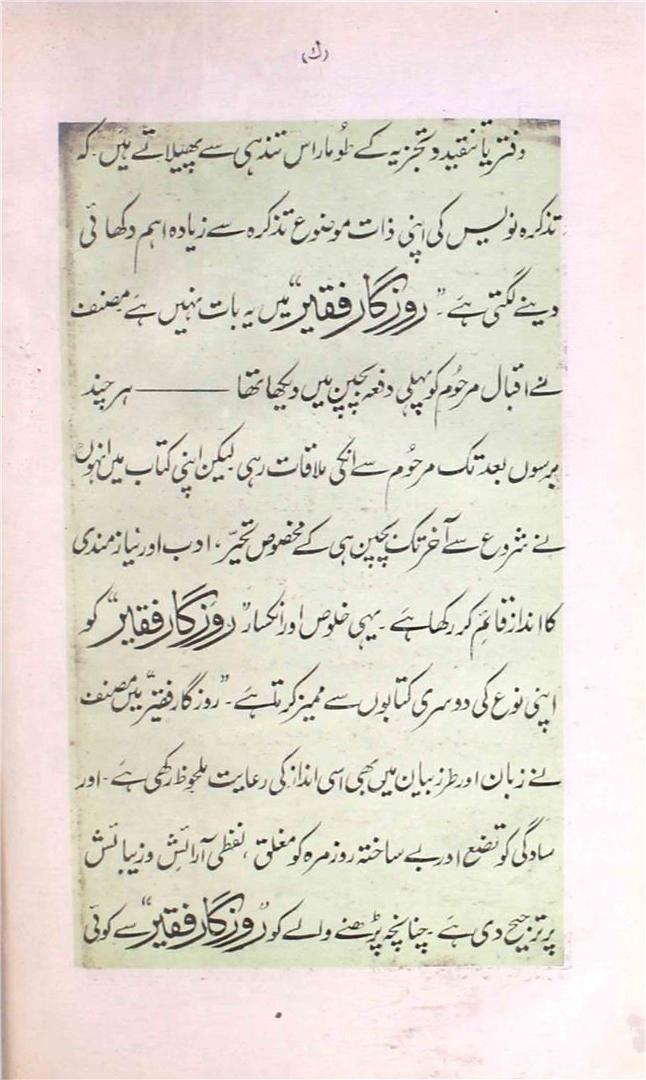 (ک)
دفتر یا تنقید و تجزیہ کے طُومار اس تندہی سے پھیلاتے ہیں کہ
تذکرہ نویس کی اپنی ذات موضوع تذکرہ سے زیادہ اہم دکھائی
دینے لگتی ہے۔ "روزگارِ فقیر" میں یہ بات نہیں ہے مصنف
نے اقبال مرحُوم کو پہلی دفعہ بچپن میں دیکھا تھا ——— ہر چند
برسوں بعد تک مرحُوم سے انکی ملاقات رہی لیکن اپنی کتاب میں انہوں
نے شروع سے آخر تک بچپن ہی کے مخصوص تحیّر، ادب اور نیاز مندی
کا انداز قائم کر رکھا ہے۔ یہی خلوص اور انکسار "روزگارِ فقیر" کو
اپنی نوع کی دوسری کتابوں سے ممیز کرتا ہے۔ "روزگارِ فقیر" میں مصنف
نے زبان اور طرزِ بیان میں بھی اسی انداز کی رعایت ملحوظ رکھی ہے۔ اور
سادگی کو تصنع اور بے ساختہ روزمرہ کو مغلق، لفظی آرائش و زیبائش
پر ترجیح دی ہے۔ چنانچہ پڑھنے والے کو "روزگارِ فقیر" سے کوئی